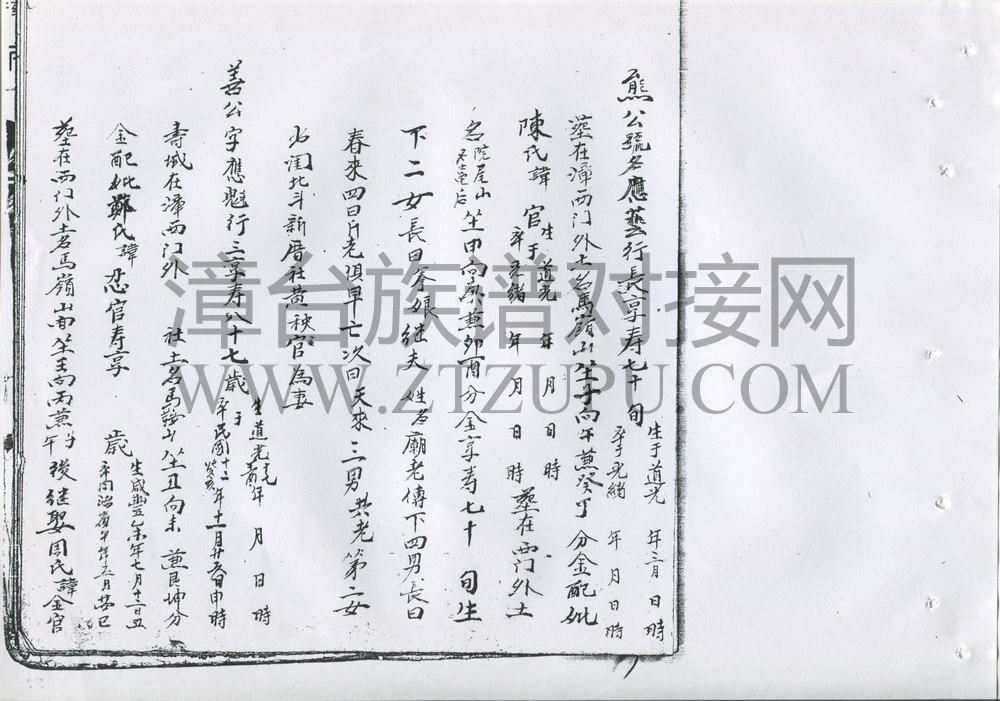 熊公號名應藝行長享寿七十旬 生于道光 年二月 日 時
卒于光緒 年 月 日 時
塟在漳西门外土名馬嶺山坐子向午兼癸丁分金配妣
陳氏諱 官 生于道光 年 月 日 時
卒光緒 年 月 日 時 塟在西门外土
名院尾山 后坐甲向庚兼卯酉分金享寿七十 旬生
下二女長曰 娘继夫姓名廟老傳下四男長曰
春來四曰斤老俱早亡次曰天來三男共老第二女
北斗新厝社黄秧官為妻
善公字應魁行三享寿八十七歲 生道光 年 月 日 時
于卒民國十二癸亥年十一月廿 日申時
寿域在漳西門外 社土名馬鞍山坐丑向未兼艮坤分
金配妣鄭氏諱忍官寿享 歲 生咸豐 未年七月十 日丑
卒同治 年 月 巳
塟在西门外土名馬嶺山 坐壬向丙兼子午後继娶周氏諱金官
漳台族谱对接网
WWW.ZTZUPU.COM